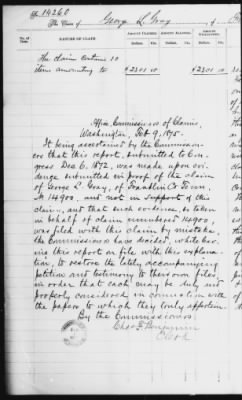 No 14260
The Case of George L. Gray, of
NATURE OF CLAIM.
AMOUNT CLAIMED.
AMOUNT ALLOWED.
AMOUNT DISALLOWED.
Dolls. Cts.
Dolls. Cts.
Dolls. Cts.
The claim contains 10
items amounting to $2301 10 $2301 10
Office Commissioners of Claims,
Washington, Feb 9, 1875.
It being ascertained by the Commission-
ers that this report, submitted to Con-
gress Dec 6, 1872, was made upon evi-
dence submitted in proof of the claim
of George L. Gray, of Franklin Co Tenn,
No 14900, and not in support of this
claim, and that such evidence, so taken
in behalf of claim numbered 14900,
was filed with this claim by mistake,
the Commissioners have decided, while leav-
ing this report on file with this explana-
tion, to restore the lately accompanying
petition and testimony to their own files,
in order that each may be duly and
properly considered in connection with
the papers to which they justly appertain.
By the Commissioners:
Chas. F. Benjamin
Clerk